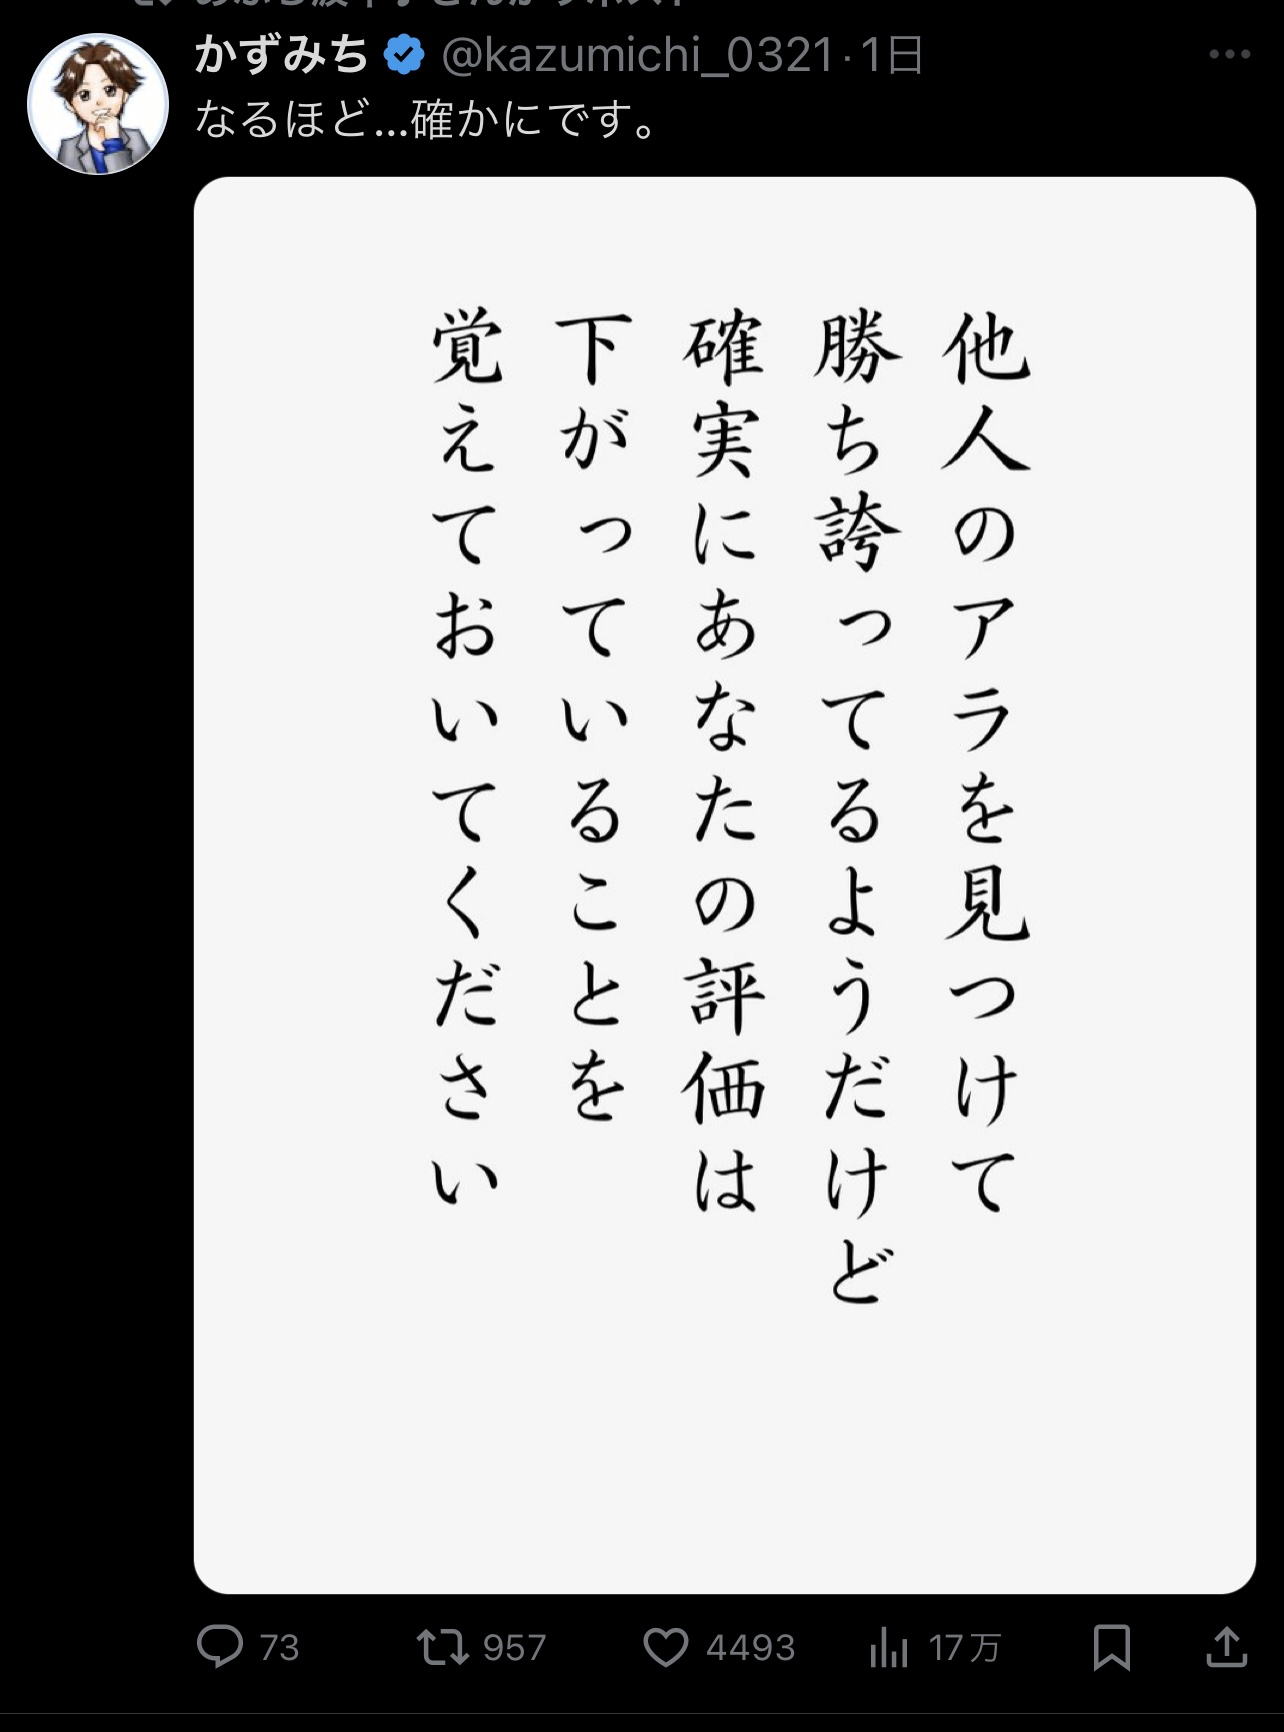 かずみち @kazumichi_0321·1日
なるほど…確かにです。
他人のアラを見つけて
勝ち誇ってるようだけど
確実にあなたの評価は
下がっていることを
覚えておいてください
73 957 4493 17万